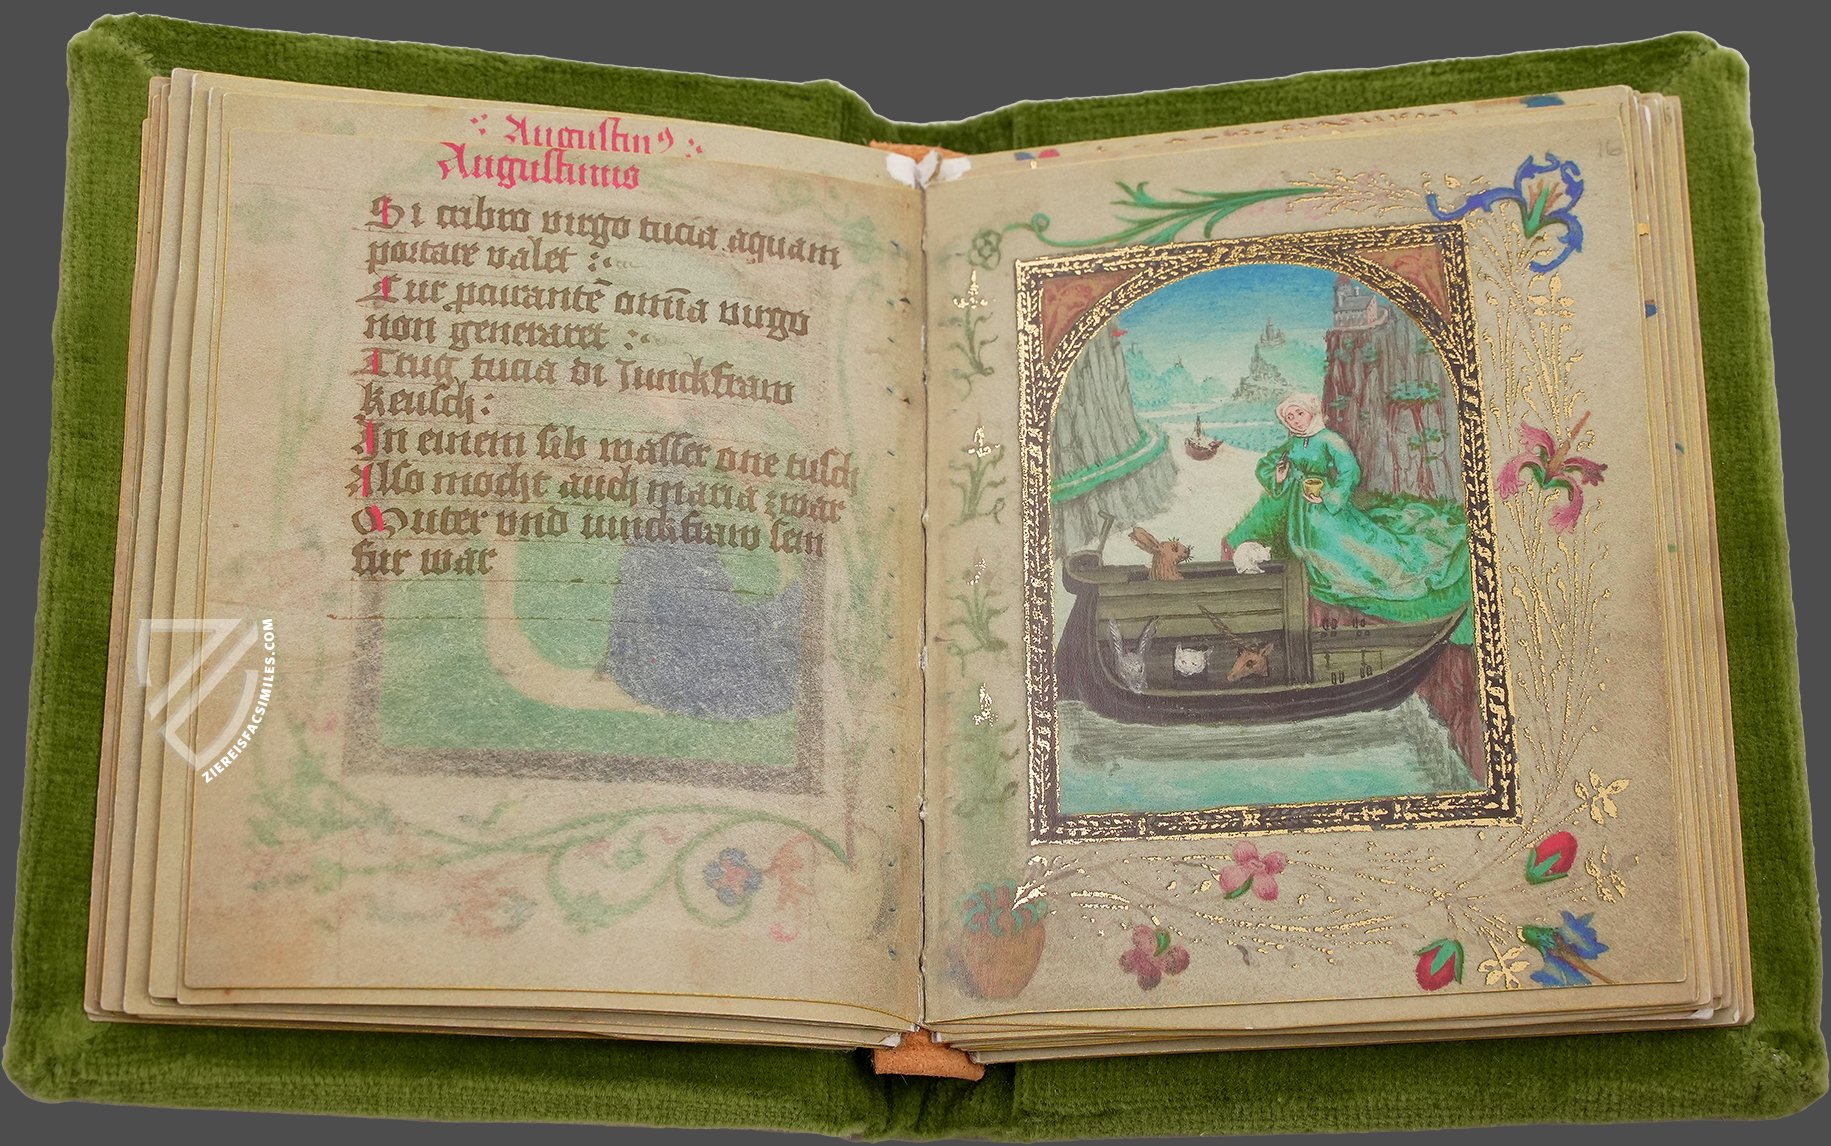 Augustin⁹
Augustinus
Si cribro virgo tucia aquam
portare valet :~
Cur parante᷒ om̄ia virgo
non generaret :~
Trug tucia di Junckfraw
keusch:
In einem sib wasser one tusch
Also mocht auch maria zwar
Muter vnd iunckfraw sein
fur war
16
ZIEREISFACSIMILES.COM